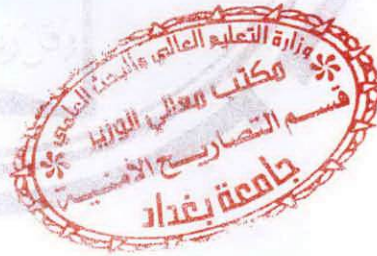 وزارة التعليم العالي والبحث العلمي
مكتب معالي الوزير
قسم التصاريح الأمنية
جامعة بغداد